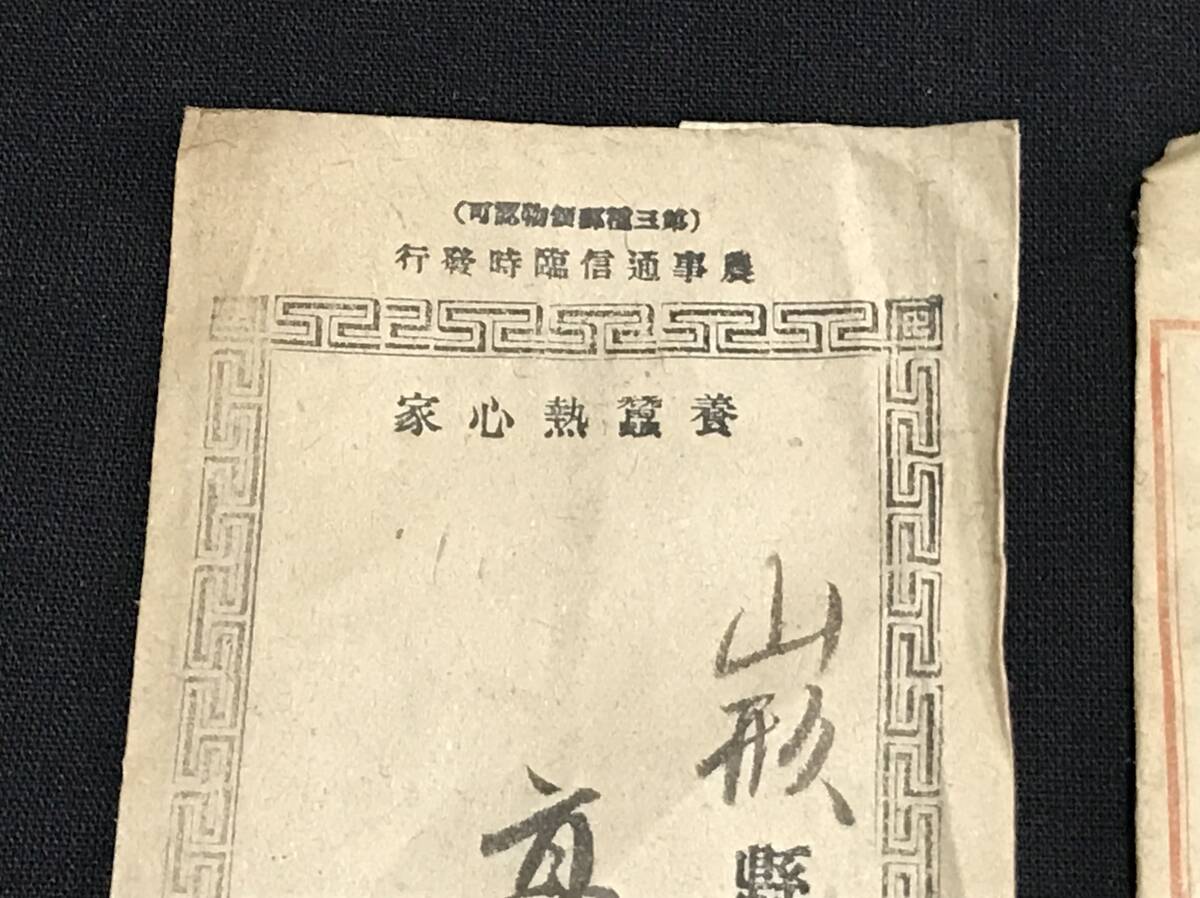 (第三種郵便物認可)
農事通信臨時發行
養蠶熱心家
山形縣